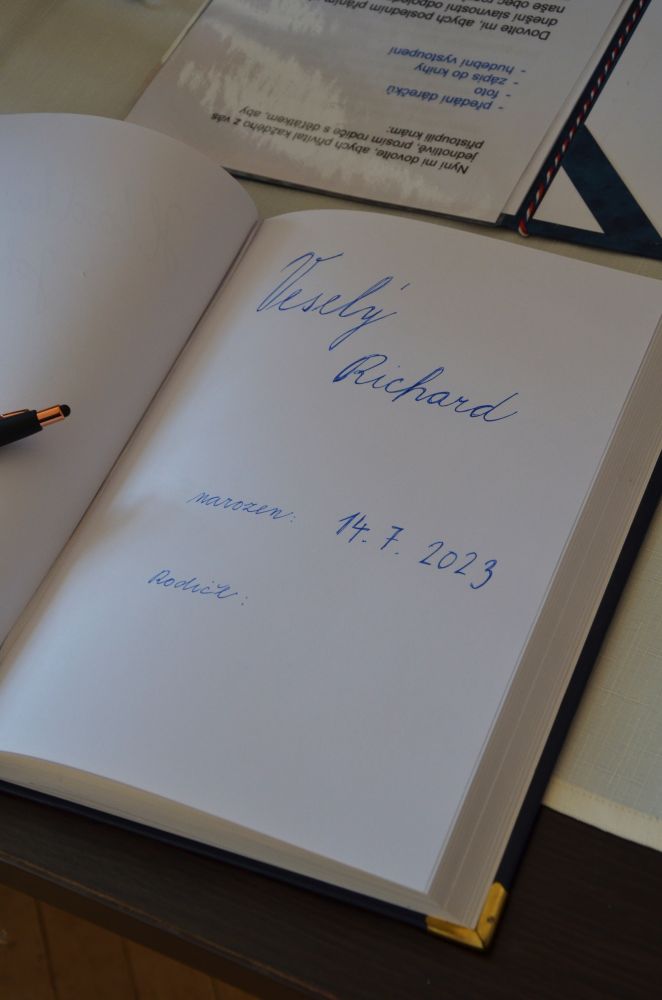 Veselý
Richard
narozen: 14. 7. 2023
Rodiče:
Nyní mi dovolte, abych přivítal každého z vás
jednotlivě, prosím rodiče s děťátkem, aby
přistoupili k nám:
- předání dárečků
- foto
- zápis do knihy
- hudební vystoupení
Dovolte mi, abych posledním přáním
dnešní slavnostní
naše obec